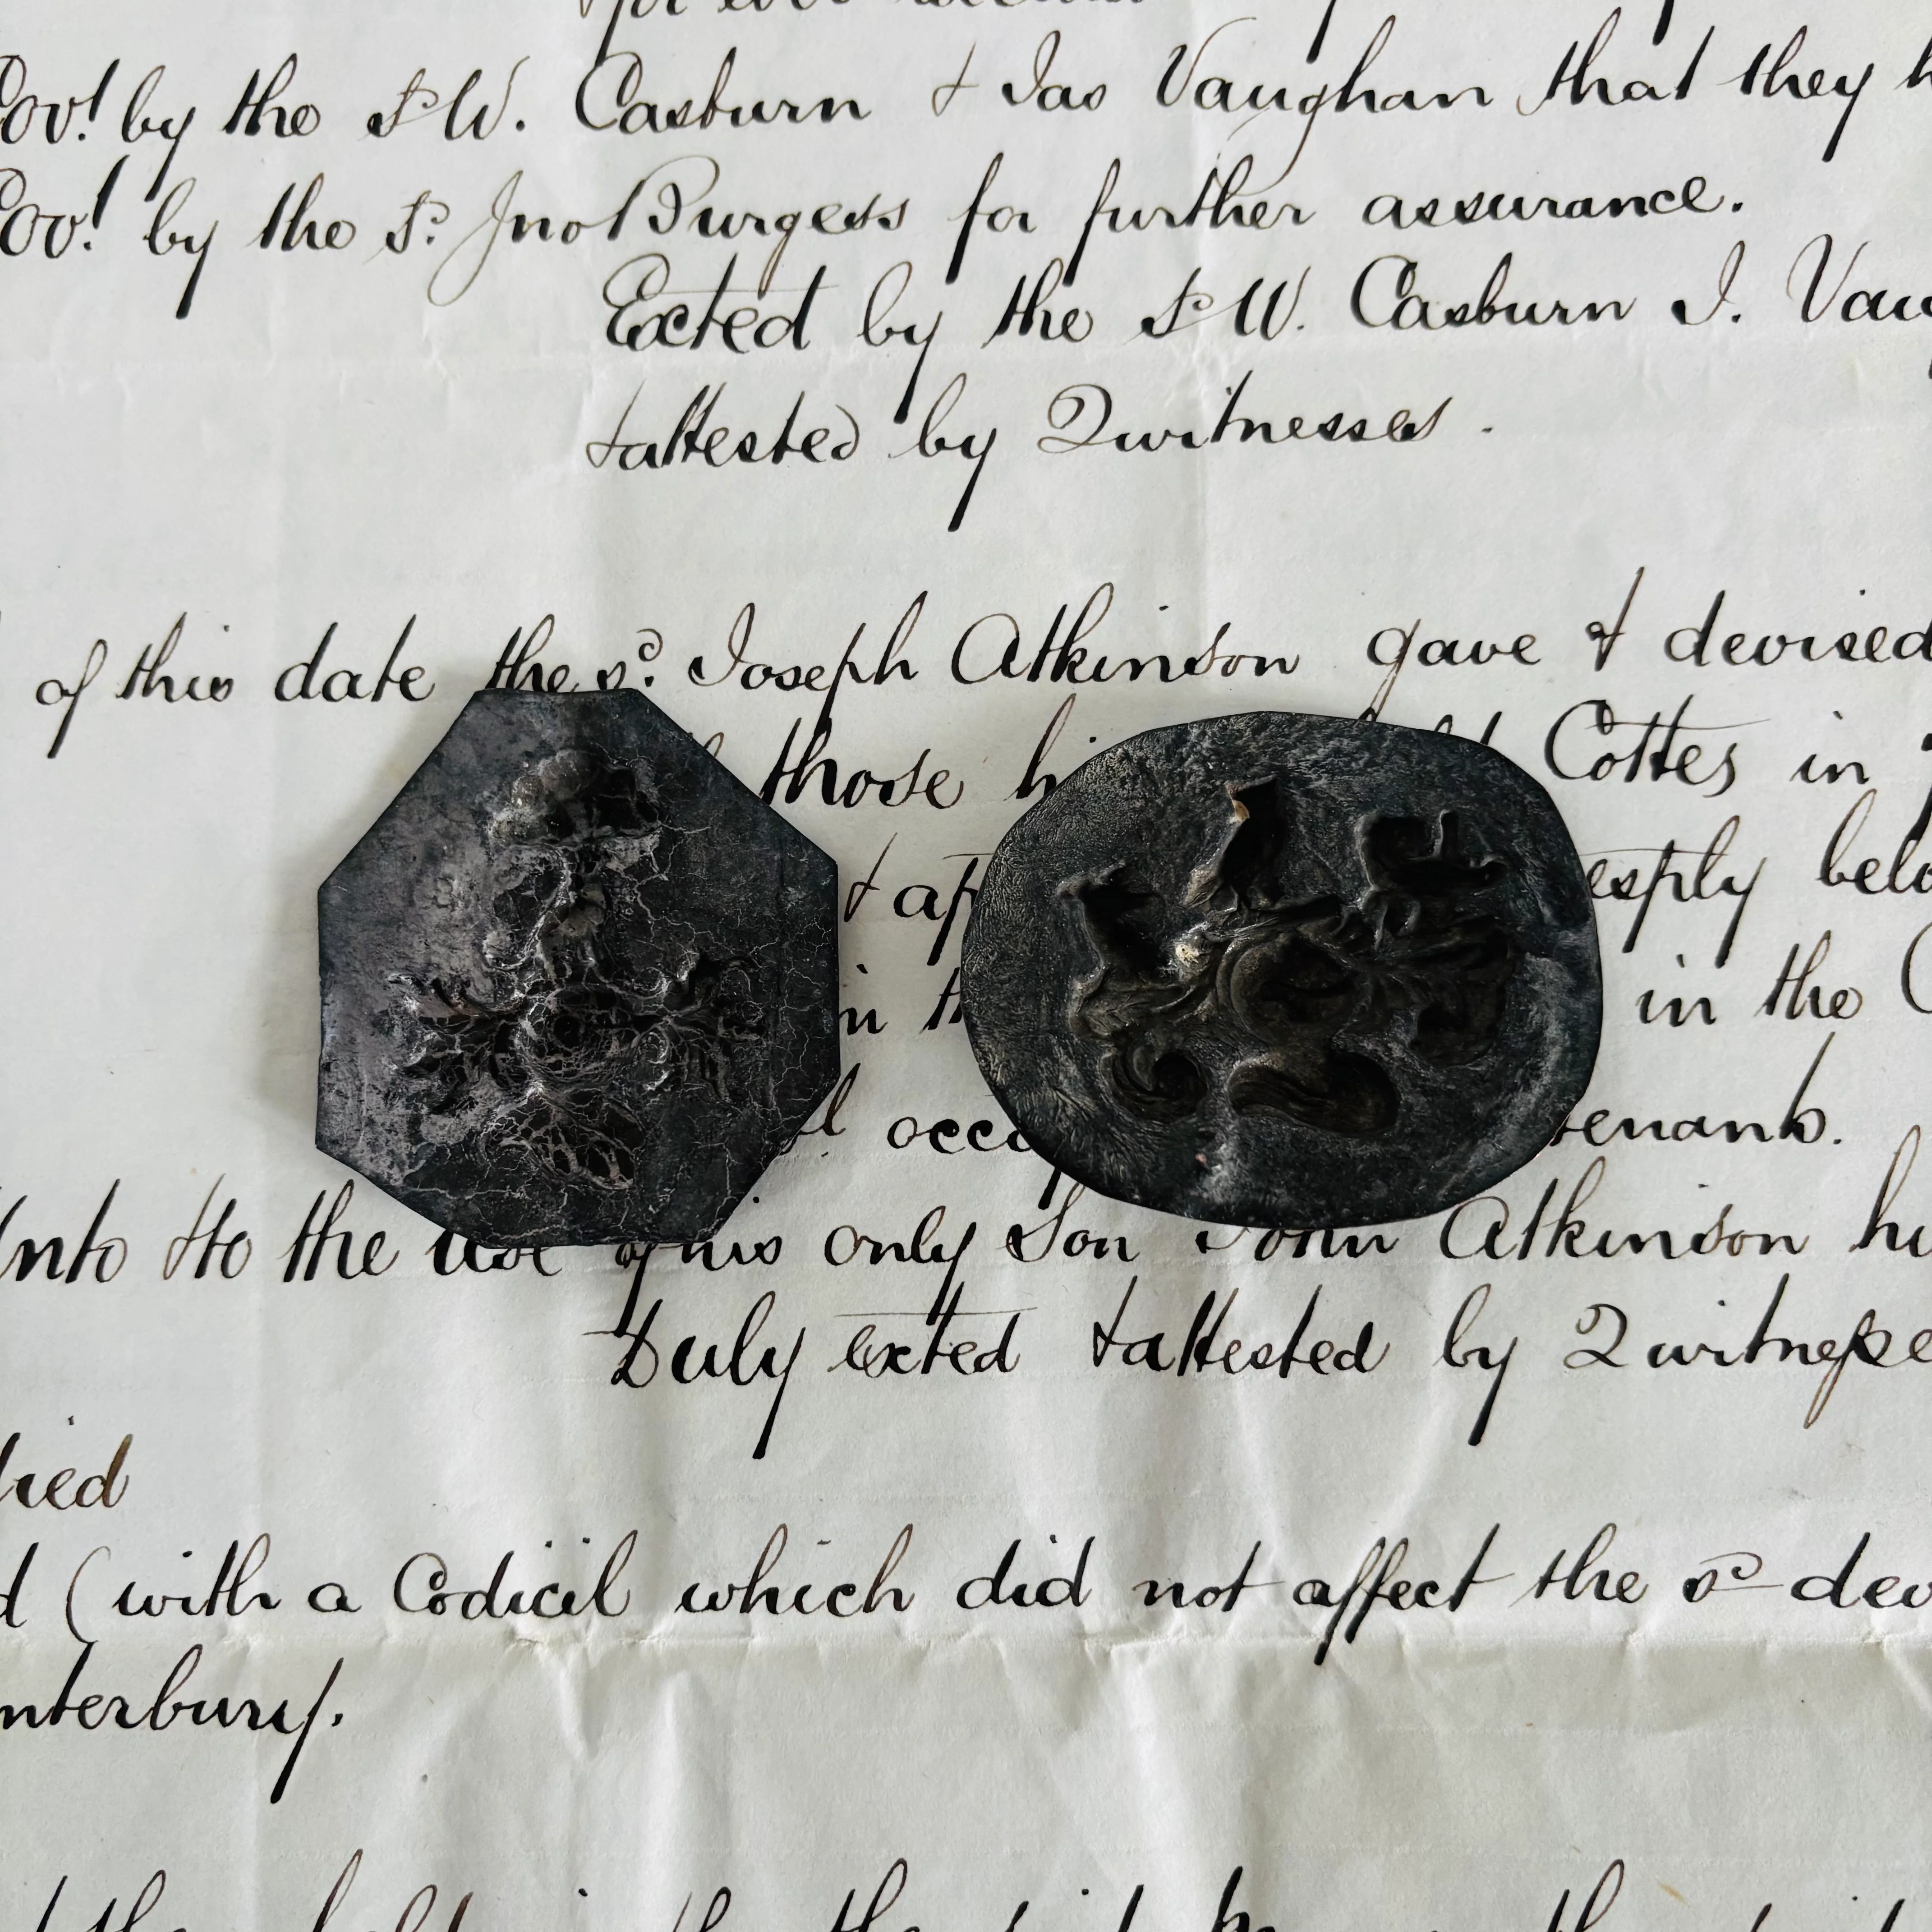 for ever
Cov! by the sd W. Casburn & Jas Vaughan that they
Cov! by the sd. Jno Burgess for further assurance.
Exted by the sd W. Casburn J. Vau
& attested by 2 witnesses.
of this date the sd. Joseph Atkinson gave & devised
those Cottes in
& esply belo
in in the
tenants.
Unto & to the use of his only Son John Atkinson
Duly exted & attested by 2 witnesse
died
d (with a Codicil which did not affect the sd dev
nterbury.